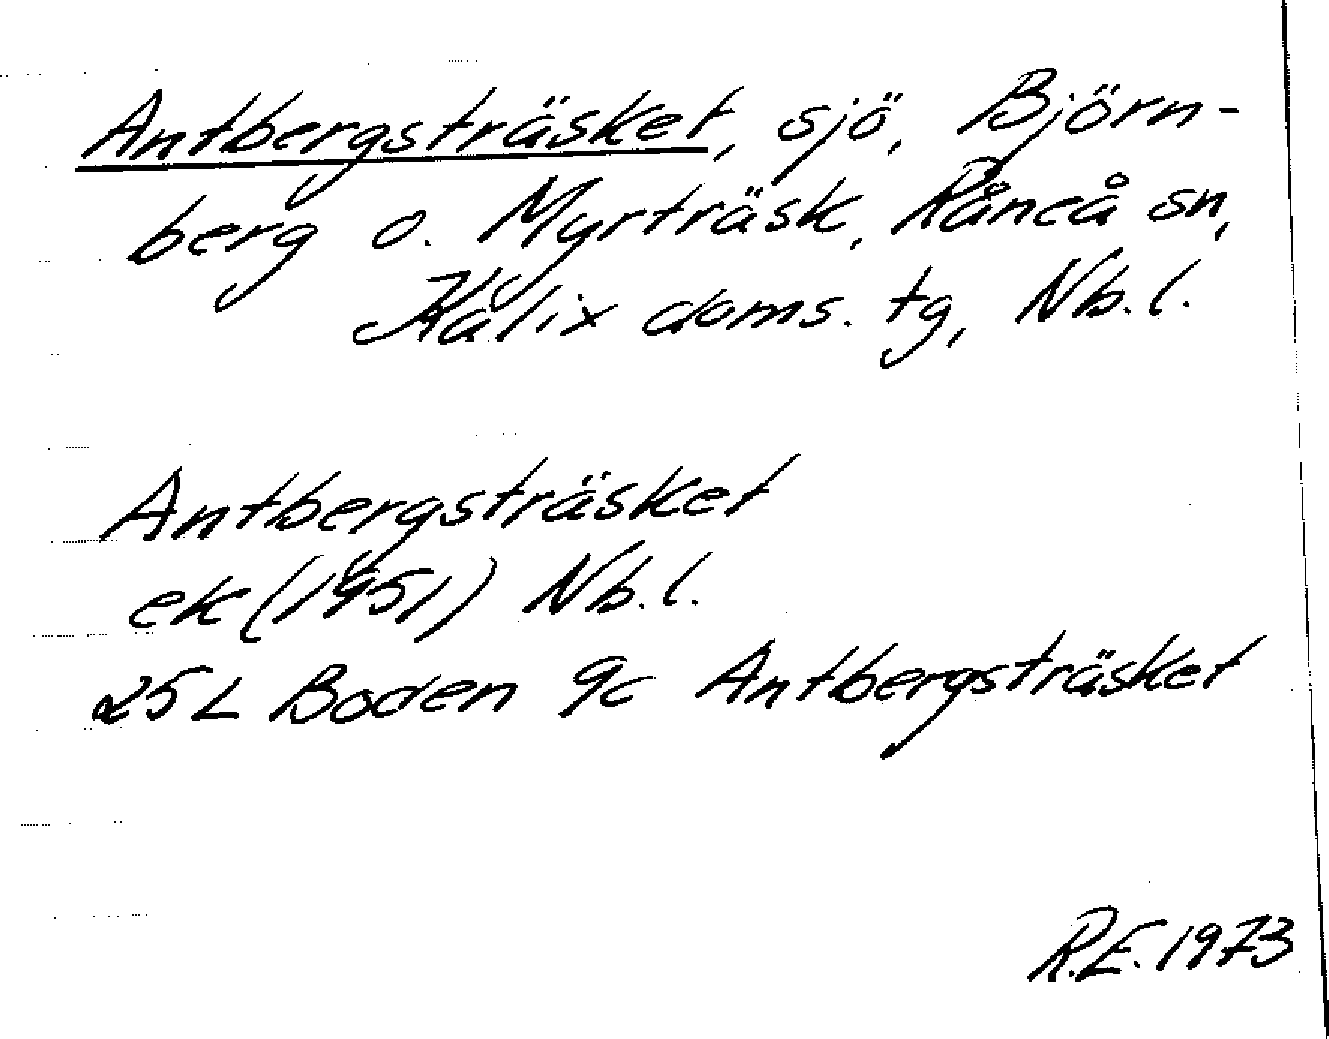 Antbergsträsket, sjö, Björn-
berg o. Myrträsk, Råneå sn,
Kalix doms. tg, Nb. l.
Antbergsträsket
ek (1951) Nb. l.
25 L Boden 9c Antbergsträsket
R.E. 1973